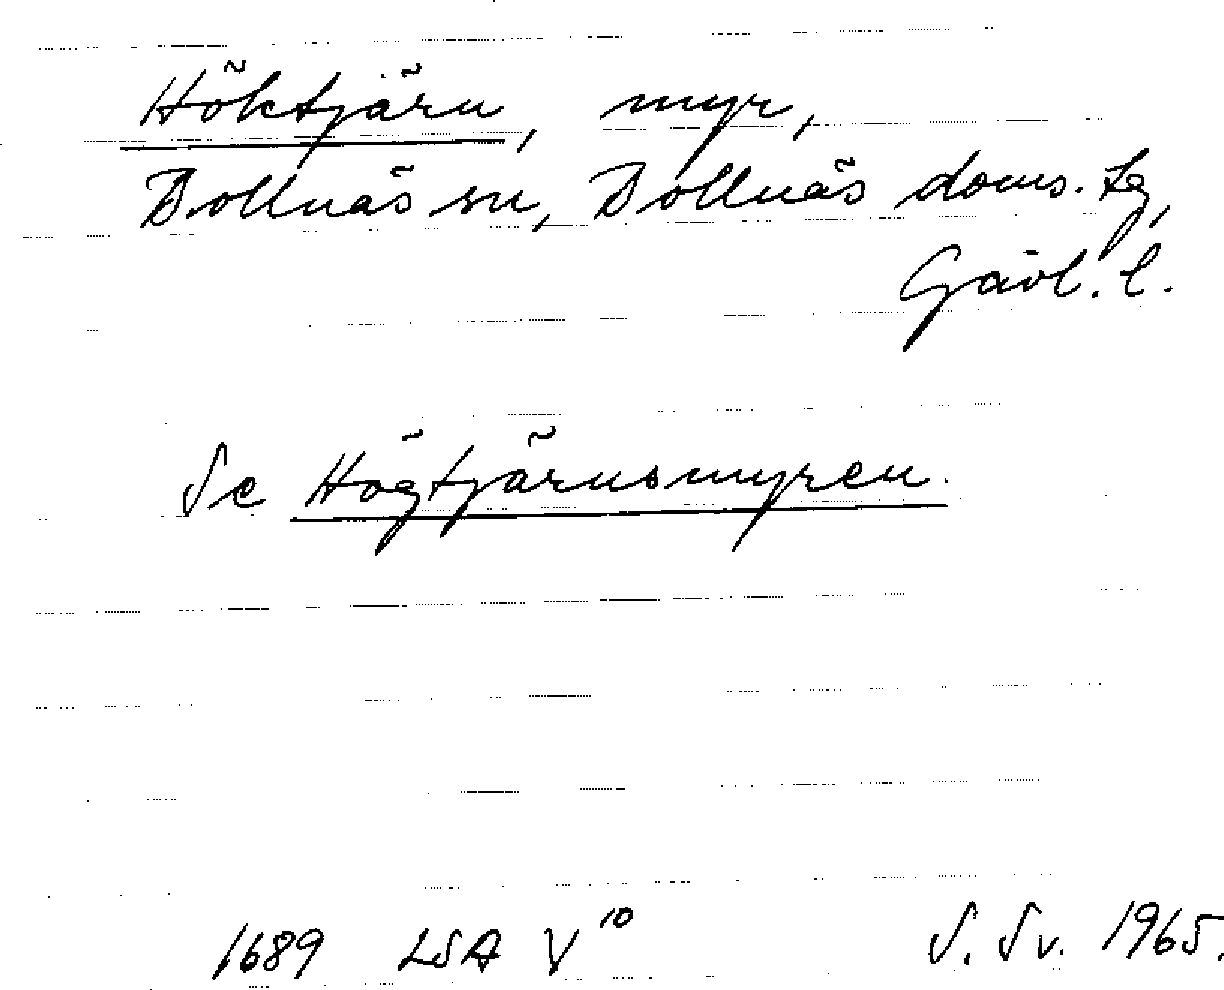 Höktjärn, myr,
Bollnäs sn, Bollnäs doms. tg,
Gävl. l.
Se Högtjärnsmyren.
1689 LSA V 10 S. Sv. 1965.